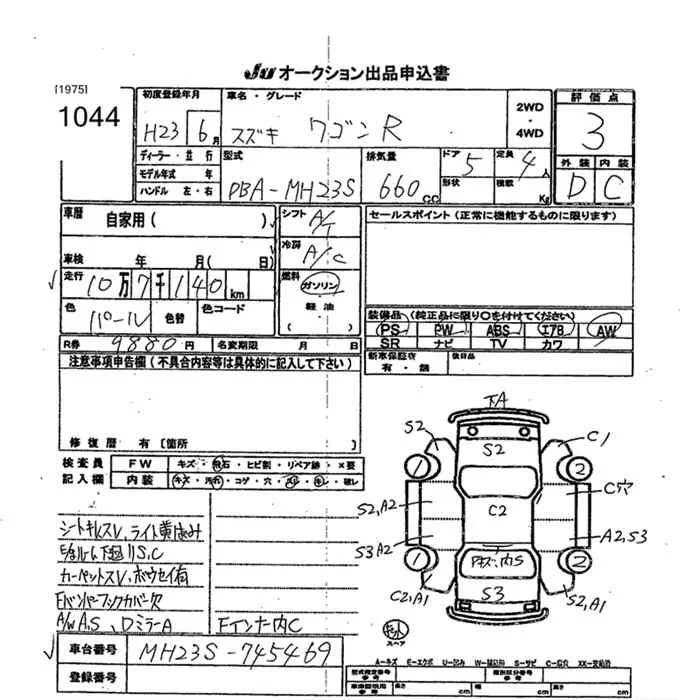 JU オークション出品申込書
[1975]
1044
初度登録年月
H23 6月
車名・グレード
スズキ ワゴンR
2WD
・
4WD
評価点
3
外装 内装
D C
ディーラー・並行
モデル年式 年
ハンドル 左・右
型式
DBA-MH23S
排気量
660 CC
ドア 5
形状
定員 4人
積載 Kg
車歴 自家用( )
車検 年 月( 日)
走行 10万7千140km
色 パール 色替 色コード
シフト A/T
冷房 A/C
燃料
ガソリン
軽油
( )
セールスポイント(正常に機能するものに限ります)
装備品(純正品に限り○を付けてください)
PS PW ABS エアB AW
SR ナビ TV カワ
R券 9880円 名変期限 月 日
新車保証書
有・無
後日品
注意事項申告欄(不具合内容等は具体的に記入して下さい)
修復歴 有[箇所
検査員
記入欄
FW キズ・飛石・ヒビ割・リペア跡・X要
内装 キズ・汚れ・コゲ・穴・スレ・キレ・破レ
シートキレスV、ライト黄ばみ
モール下廻りS,C
カーペットスV、ボウセイ有
Fバンパーフックカバー欠
A/W A,S、DミラーA
Fインナー内C
車台番号 MH23S-745469
登録番号
下A
S2
S2
C1
2
2
C穴
S2,A2
C2
A2,S3
S3A2
内S
2
2
C2,A1
S3
S2,A1
スペア
A-キズ E-エクボ U-凹み W-補修跡 S-サビ C-腐穴 XX-交換済
型式指定番号
参考
類別区分番号
参考
長さ cm
幅 cm
高さ cm